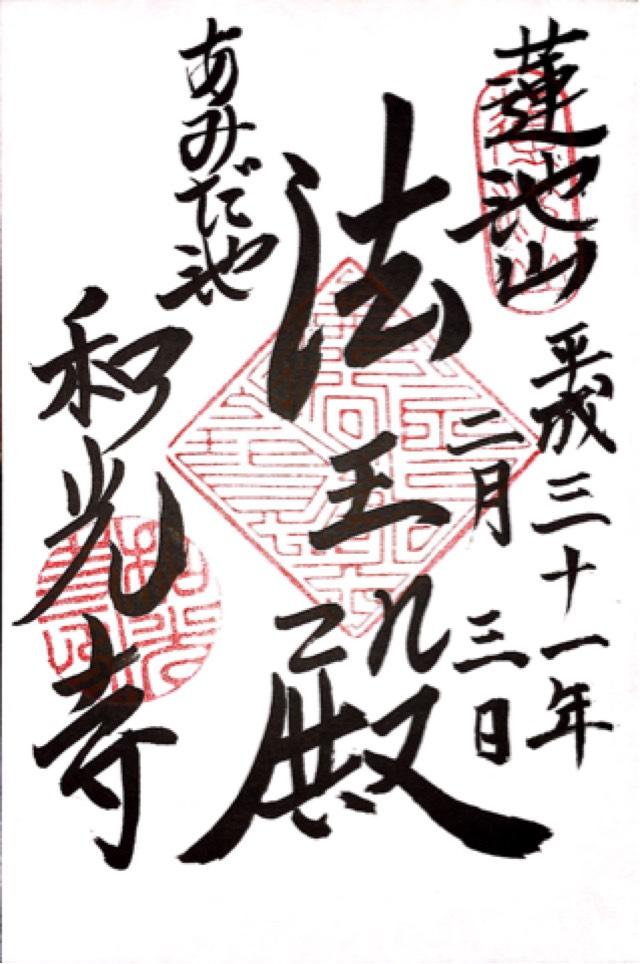 蓮池山
平成三十一年
二月三日
法王殿
あみだ池
和光寺